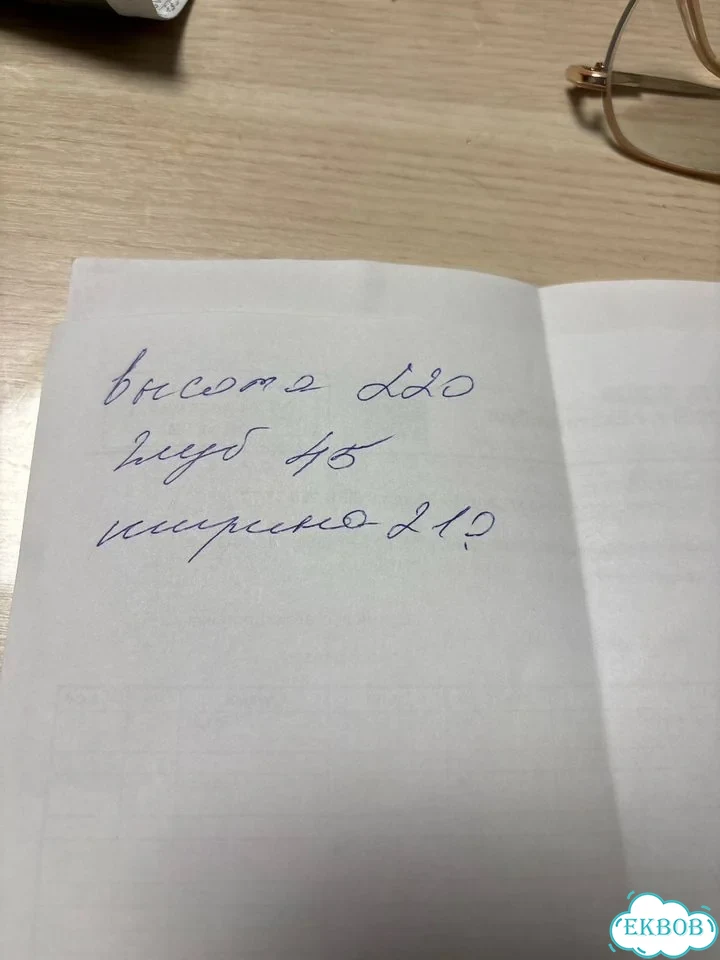 высота 220
глуб 45
ширина 21?
EKBOB